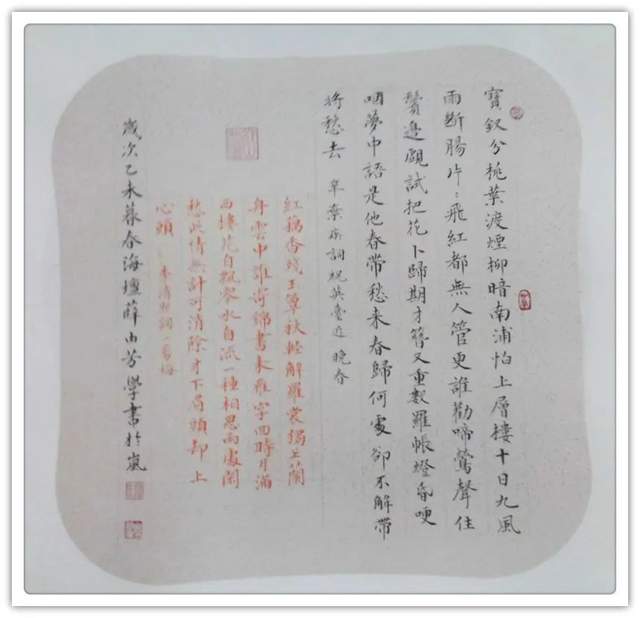 寶釵分桃葉渡煙柳暗南浦怕上層樓十日九風
雨斷腸片〻飛紅都無人管更誰勸啼鶯聲住
鬢邊覷試把花卜歸期才簪又重數羅帳燈昏哽
咽夢中語是他春帶愁來春歸何處卻不解帶
將愁去 辛棄疾詞祝英臺近 晚春
紅藕香殘玉簟秋輕解羅裳獨上蘭
舟雲中誰寄錦書來雁字回時月滿
西樓花自飄零水自流一種相思兩處閑
愁此情無計可消除才下眉頭卻上
心頭 李清照詞一剪梅
歲次乙未暮春海壇薛由芳學書於嵐